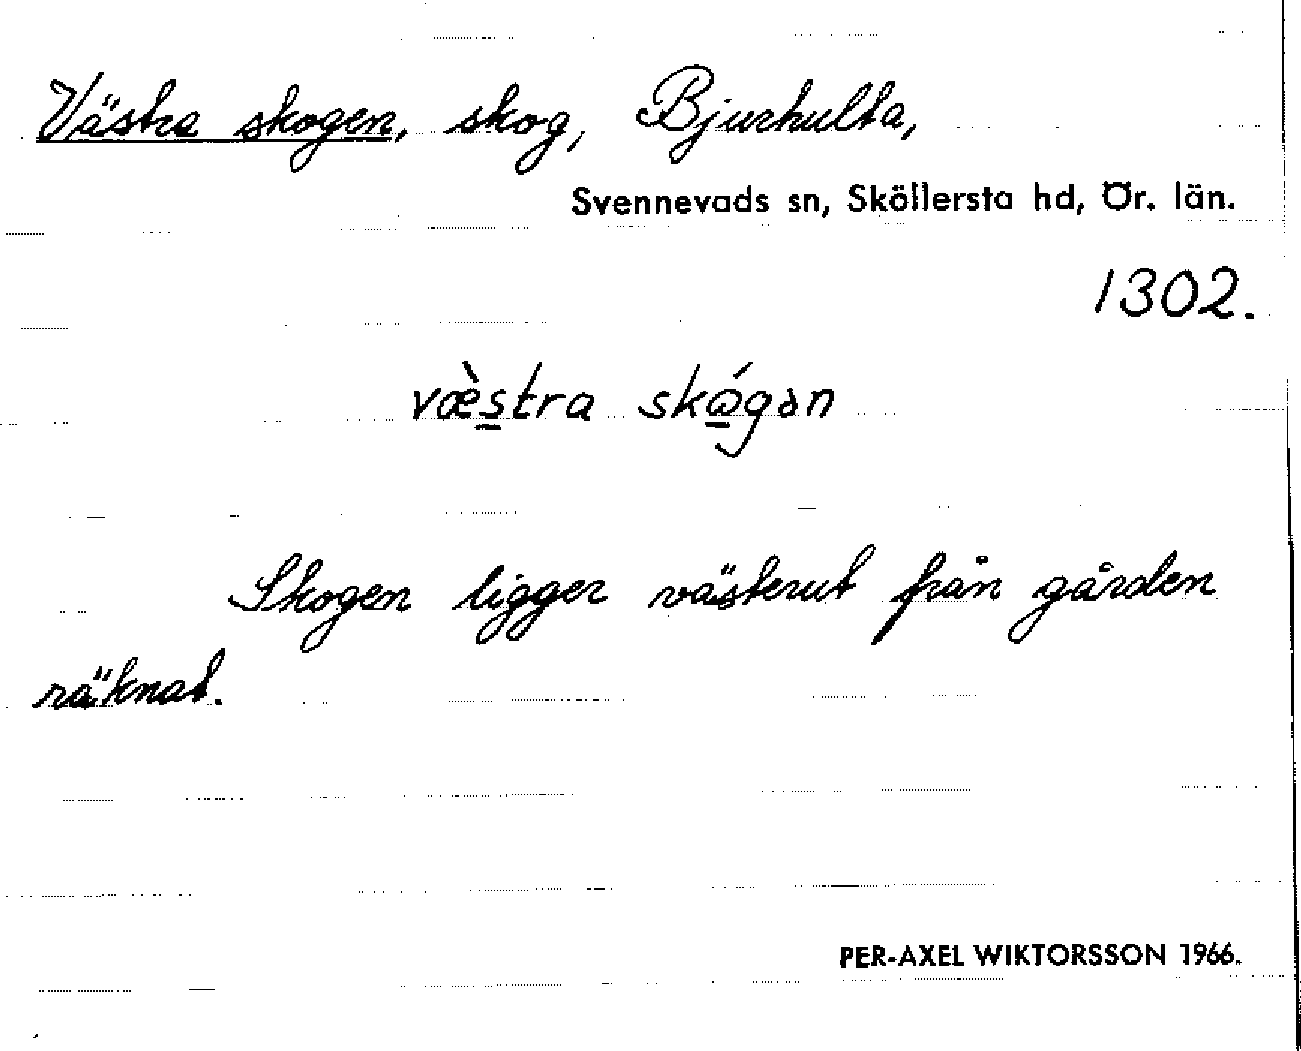 Västra skogen, skog, Bjurhulta,
Svennevads sn, Sköllersta hd, Ör. län.
1302.
væ̀s̲tra skǿ̲gən
Skogen ligger västerut från gården
räknat.
PER-AXEL WIKTORSSON 1966.